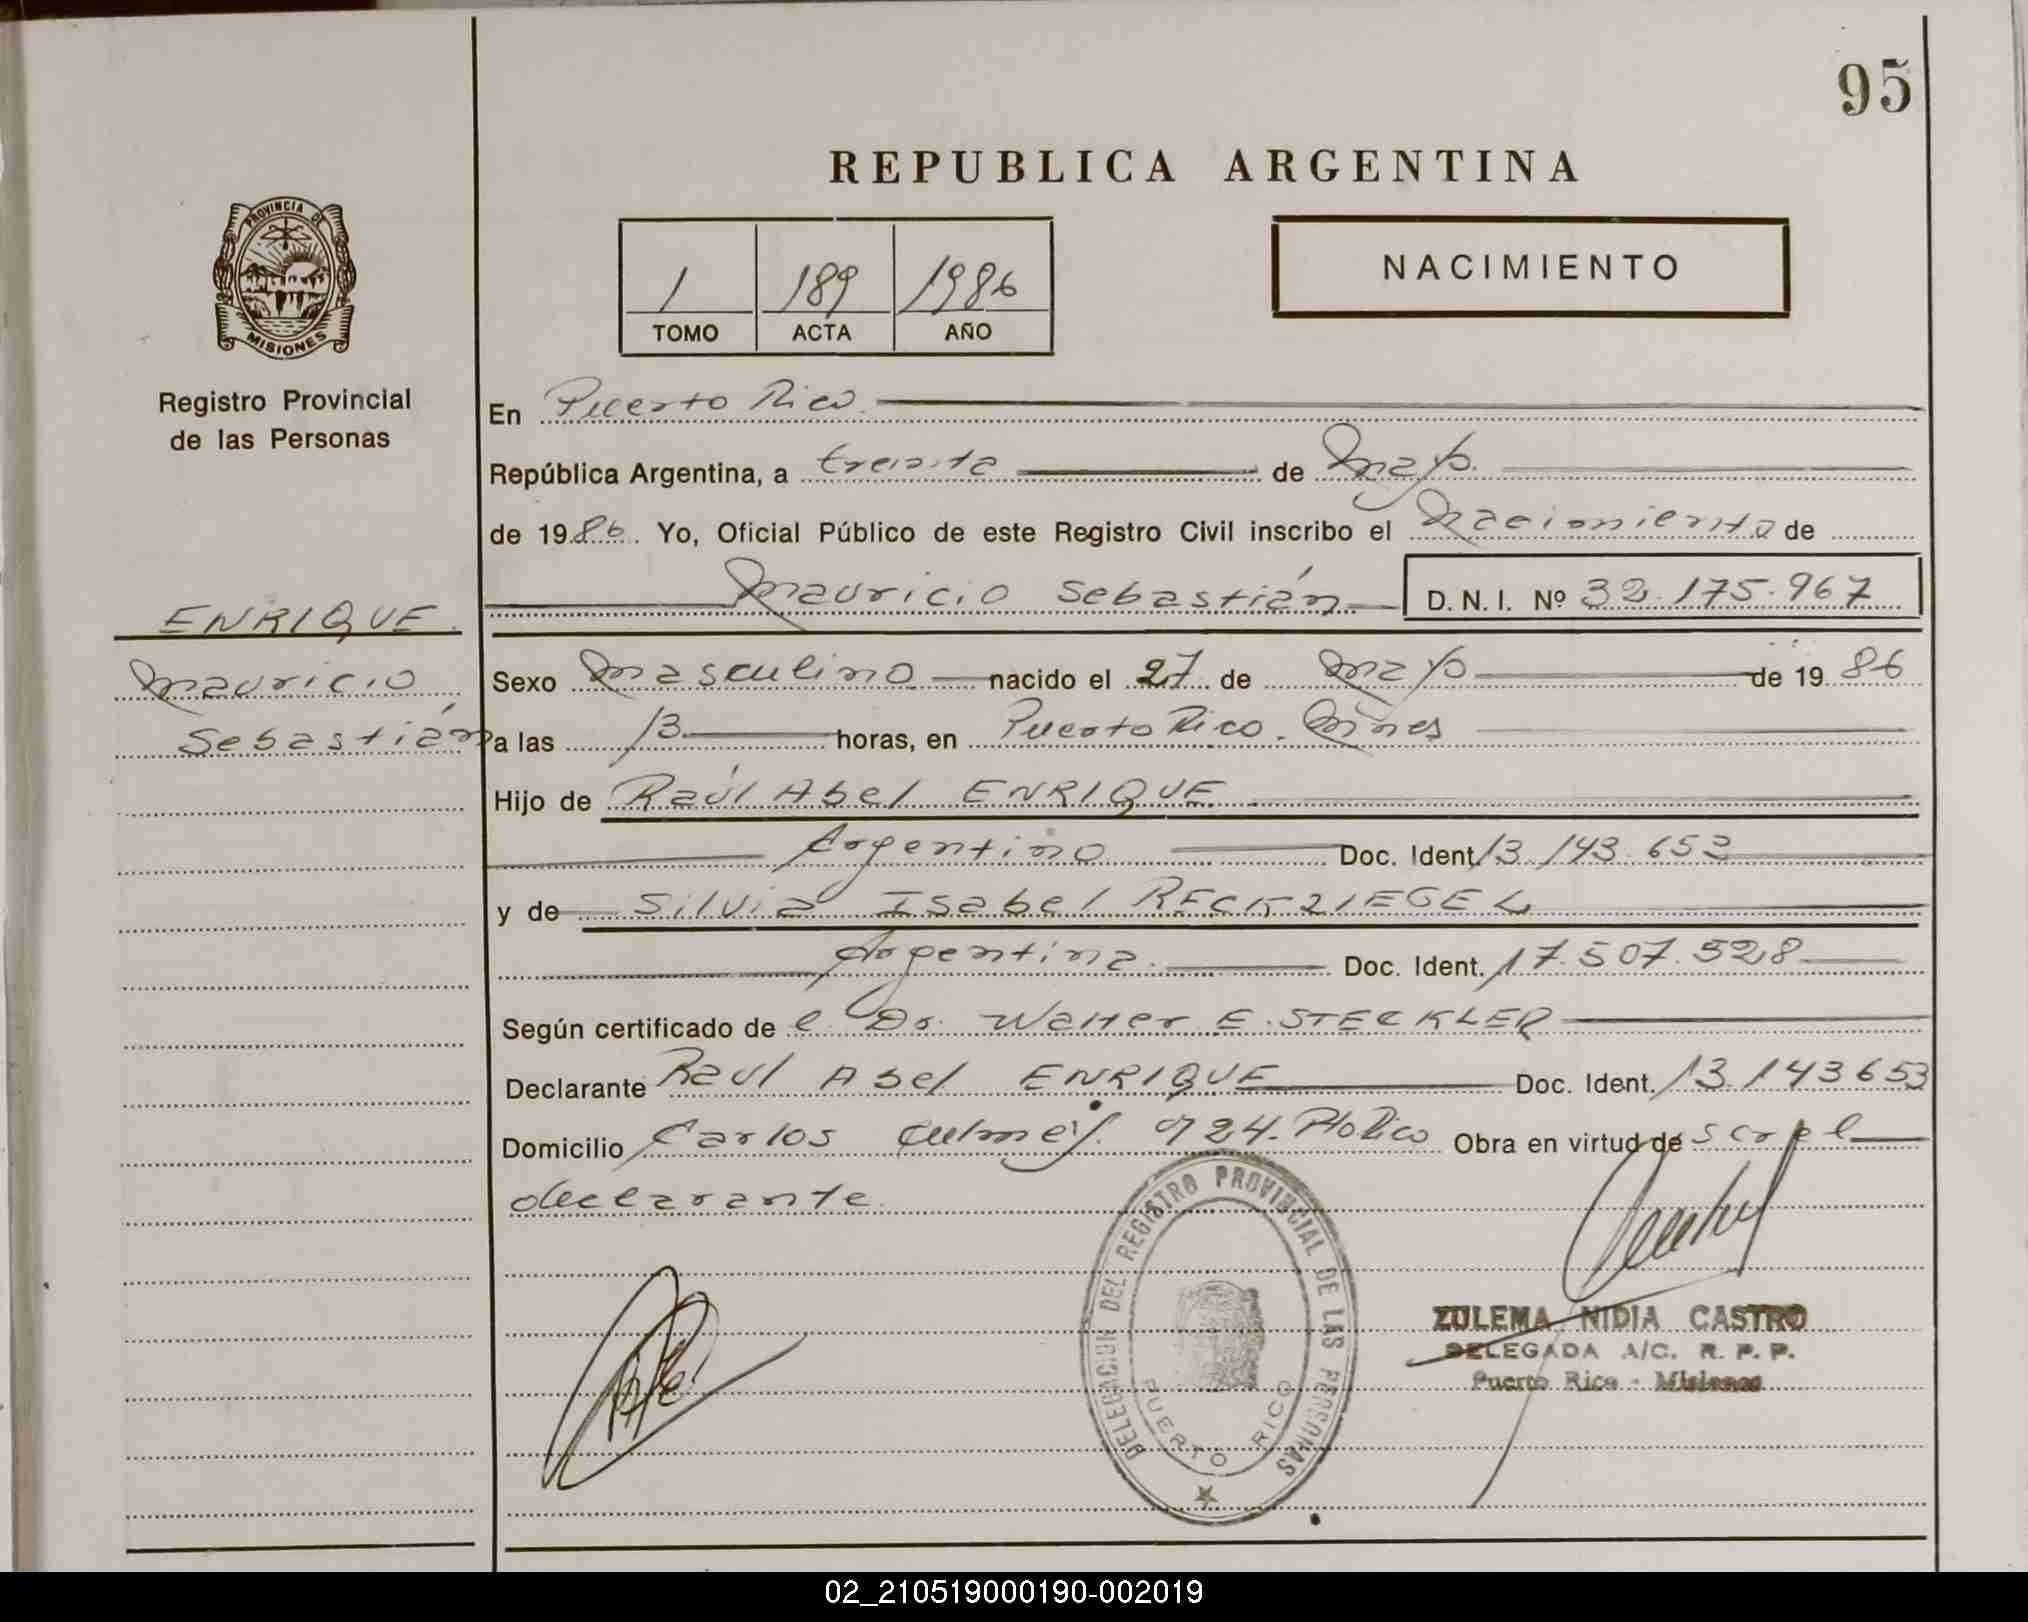 95
REPUBLICA ARGENTINA
PROVINCIA DE
MISIONES
Registro Provincial
de las Personas
1 189 1986
TOMO ACTA AÑO
NACIMIENTO
En Puerto Rico
República Argentina, a treinta de Mayo
de 1986 Yo, Oficial Público de este Registro Civil inscribo el Nacimiento de
Mauricio Sebastián D. N. I. Nº 32.175.967
ENRIQUE
Mauricio
Sebastián
Sexo Masculino nacido el 27 de Mayo de 1986
a las 13 horas, en Puerto Rico. Mnes
Hijo de Raúl Abel ENRIQUE
Argentino Doc. Ident. 13.143.653
y de Silvia Isabel RECKZIEGEL
Argentina. Doc. Ident. 17.507.528
Según certificado de el Dr. Walter E. STECKLER
Declarante Raul Abel ENRIQUE Doc. Ident. 13.143653
Domicilio Carlos Culmey 724. Pto Rico Obra en virtud de ser el
declarante.
DELEGACION DEL REGISTRO PROVINCIAL DE LAS PERSONAS
PUERTO RICO
ZULEMA NIDIA CASTRO
DELEGADA A/C. R. P. P.
Puerto Rico - Misiones
02_210519000190-002019